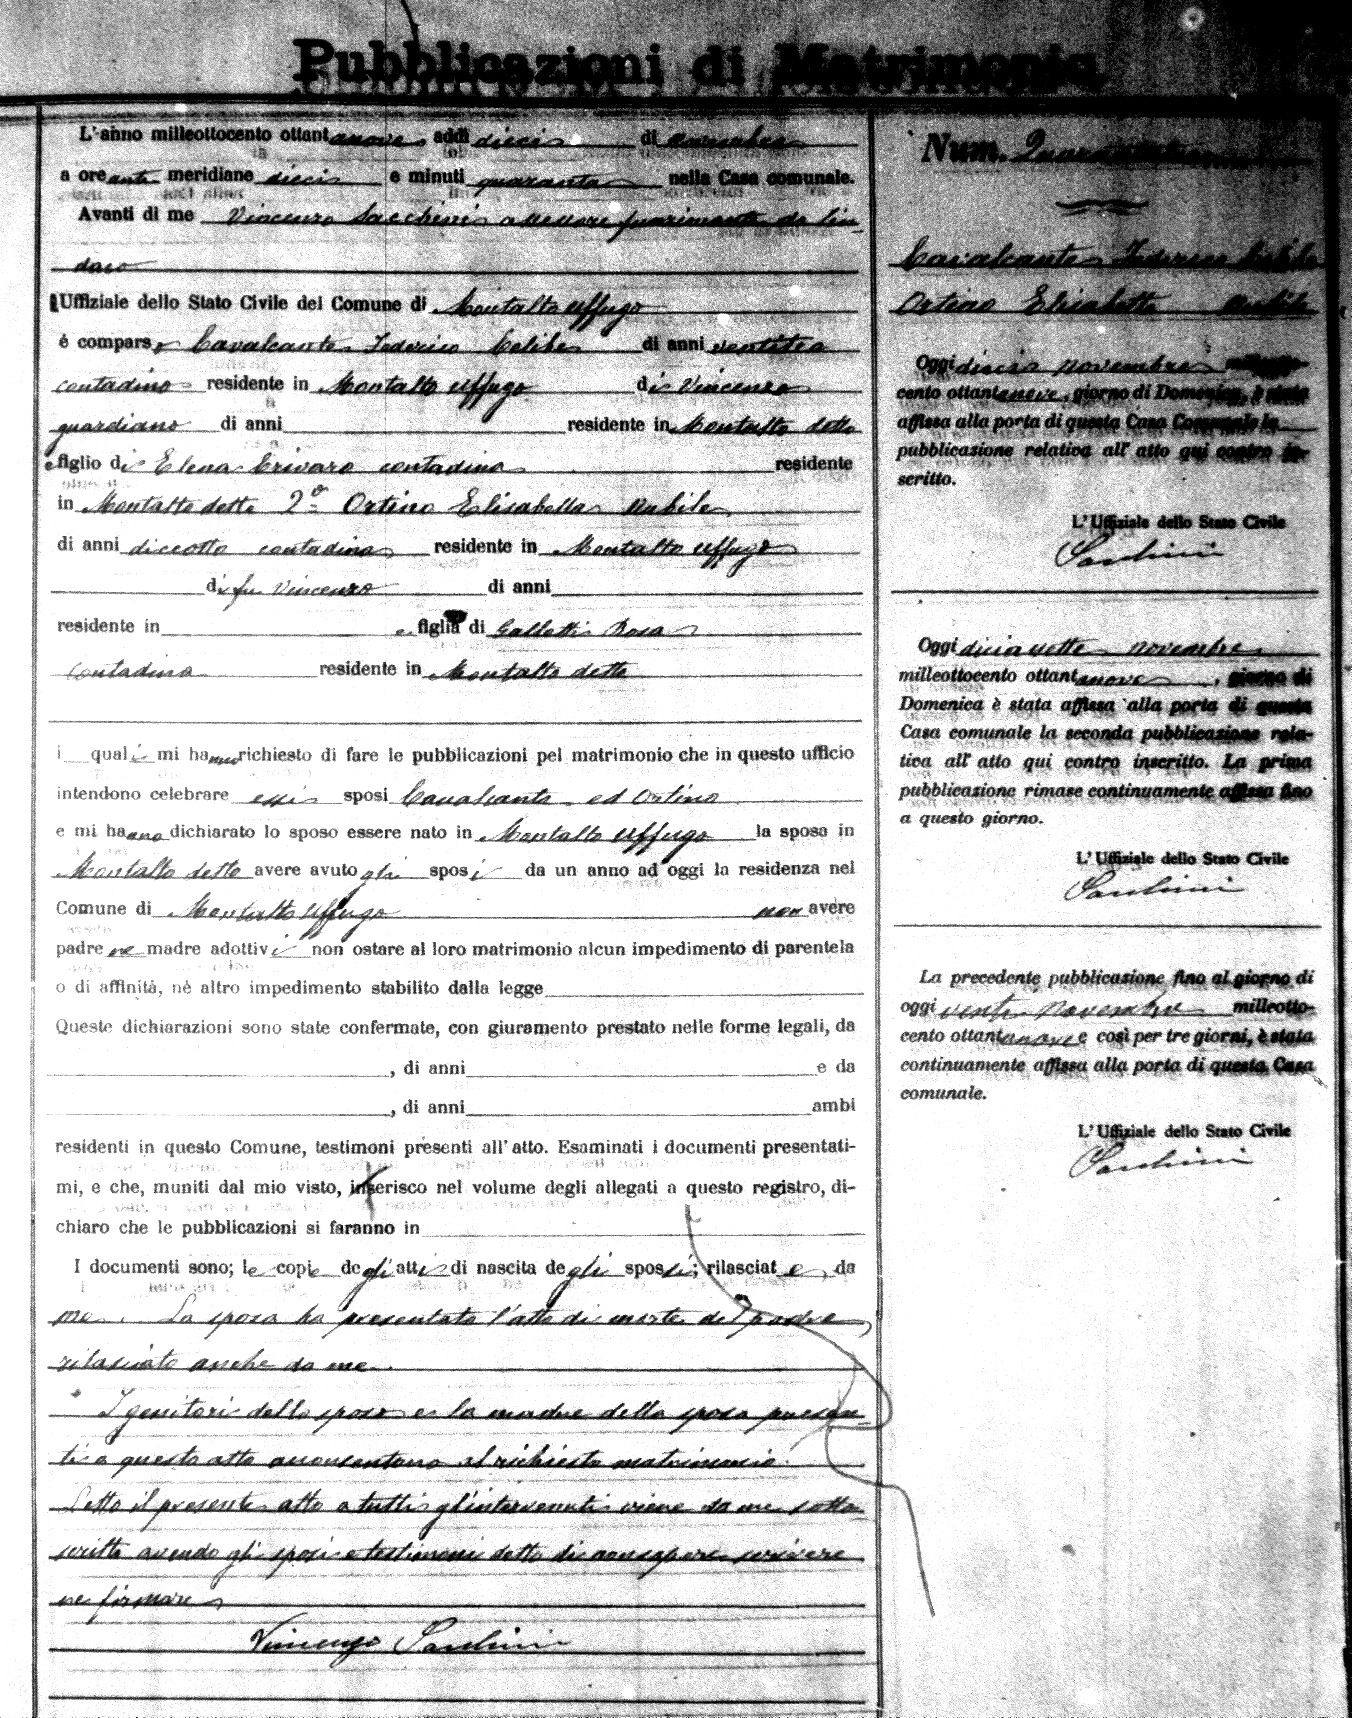 Pubblicazioni di Matrimonio
L'anno milleottocento ottantanove addì dieci di novembre
a ore anti meridiane dieci e minuti quaranta nella Casa comunale.
Avanti di me Vincenzo Sacchini assessore funzionante da Sin-
daco
Uffiziale dello Stato Civile del Comune di Montalto Uffugo
è comparso Cavalcante Federico Celibe di anni ventitre
contadino residente in Montalto Uffugo di Vincenzo
guardiano di anni residente in Montalto detto
e figlio di Elena contadina residente
in Montalto detto 2º Ortino Elisabetta nubile
di anni diciotto contadina residente in Montalto Uffugo
di fu Vincenzo di anni
residente in e figlia di Galletti Rosa
contadina residente in Montalto detto
i quali mi hanno richiesto di fare le pubblicazioni pel matrimonio che in questo ufficio
intendono celebrare essi sposi Cavalcante ed Ortino
e mi hanno dichiarato lo sposo essere nato in Montalto Uffugo la sposa in
Montalto detto avere avuto gli sposi da un anno ad oggi la residenza nel
Comune di Montalto Uffugo non avere
padre ne madre adottivi non ostare al loro matrimonio alcun impedimento di parentela
o di affinità, nè altro impedimento stabilito dalla legge
Queste dichiarazioni sono state confermate, con giuramento prestato nelle forme legali, da
, di anni e da
, di anni ambi
residenti in questo Comune, testimoni presenti all'atto. Esaminati i documenti presentati-
mi, e che, muniti dal mio visto, inserisco nel volume degli allegati a questo registro, di-
chiaro che le pubblicazioni si faranno in
I documenti sono; le copie degli atti di nascita degli sposi; rilasciate da
me. La sposa ha presentato l'atto di morte del padre,
rilasciato anche da me.
I genitori dello sposo e la madre della sposa presen-
ti a questo atto acconsentono al richiesto matrimonio.
Letto il presente atto a tutti gl'intervenuti viene da me sotto-
scritto avendo gli sposi e testimoni detto di non sapere scrivere
ne firmare
Vincenzo Sacchini
Num.
Cavalcante Federico Celibe
Ortino Elisabetta nubile
Oggi dieci novembre milleotto-
cento ottantanove, giorno di Domenica, è stata
affissa alla porta di questa Casa Comunale la
pubblicazione relativa all'atto qui contro in-
scritto.
L'Uffiziale dello Stato Civile
Sacchini
Oggi diciasette novembre
milleottocento ottantanove, giorno di
Domenica è stata affissa alla porta di questa
Casa comunale la seconda pubblicazione rela-
tiva all'atto qui contro inscritto. La prima
pubblicazione rimase continuamente affissa fino
a questo giorno.
L'Uffiziale dello Stato Civile
Sacchini
La precedente pubblicazione fino al giorno di
oggi venti novembre milleotto-
cento ottantanove e così per tre giorni, è stata
continuamente affissa alla porta di questa Casa
comunale.
L'Uffiziale dello Stato Civile
Sacchini